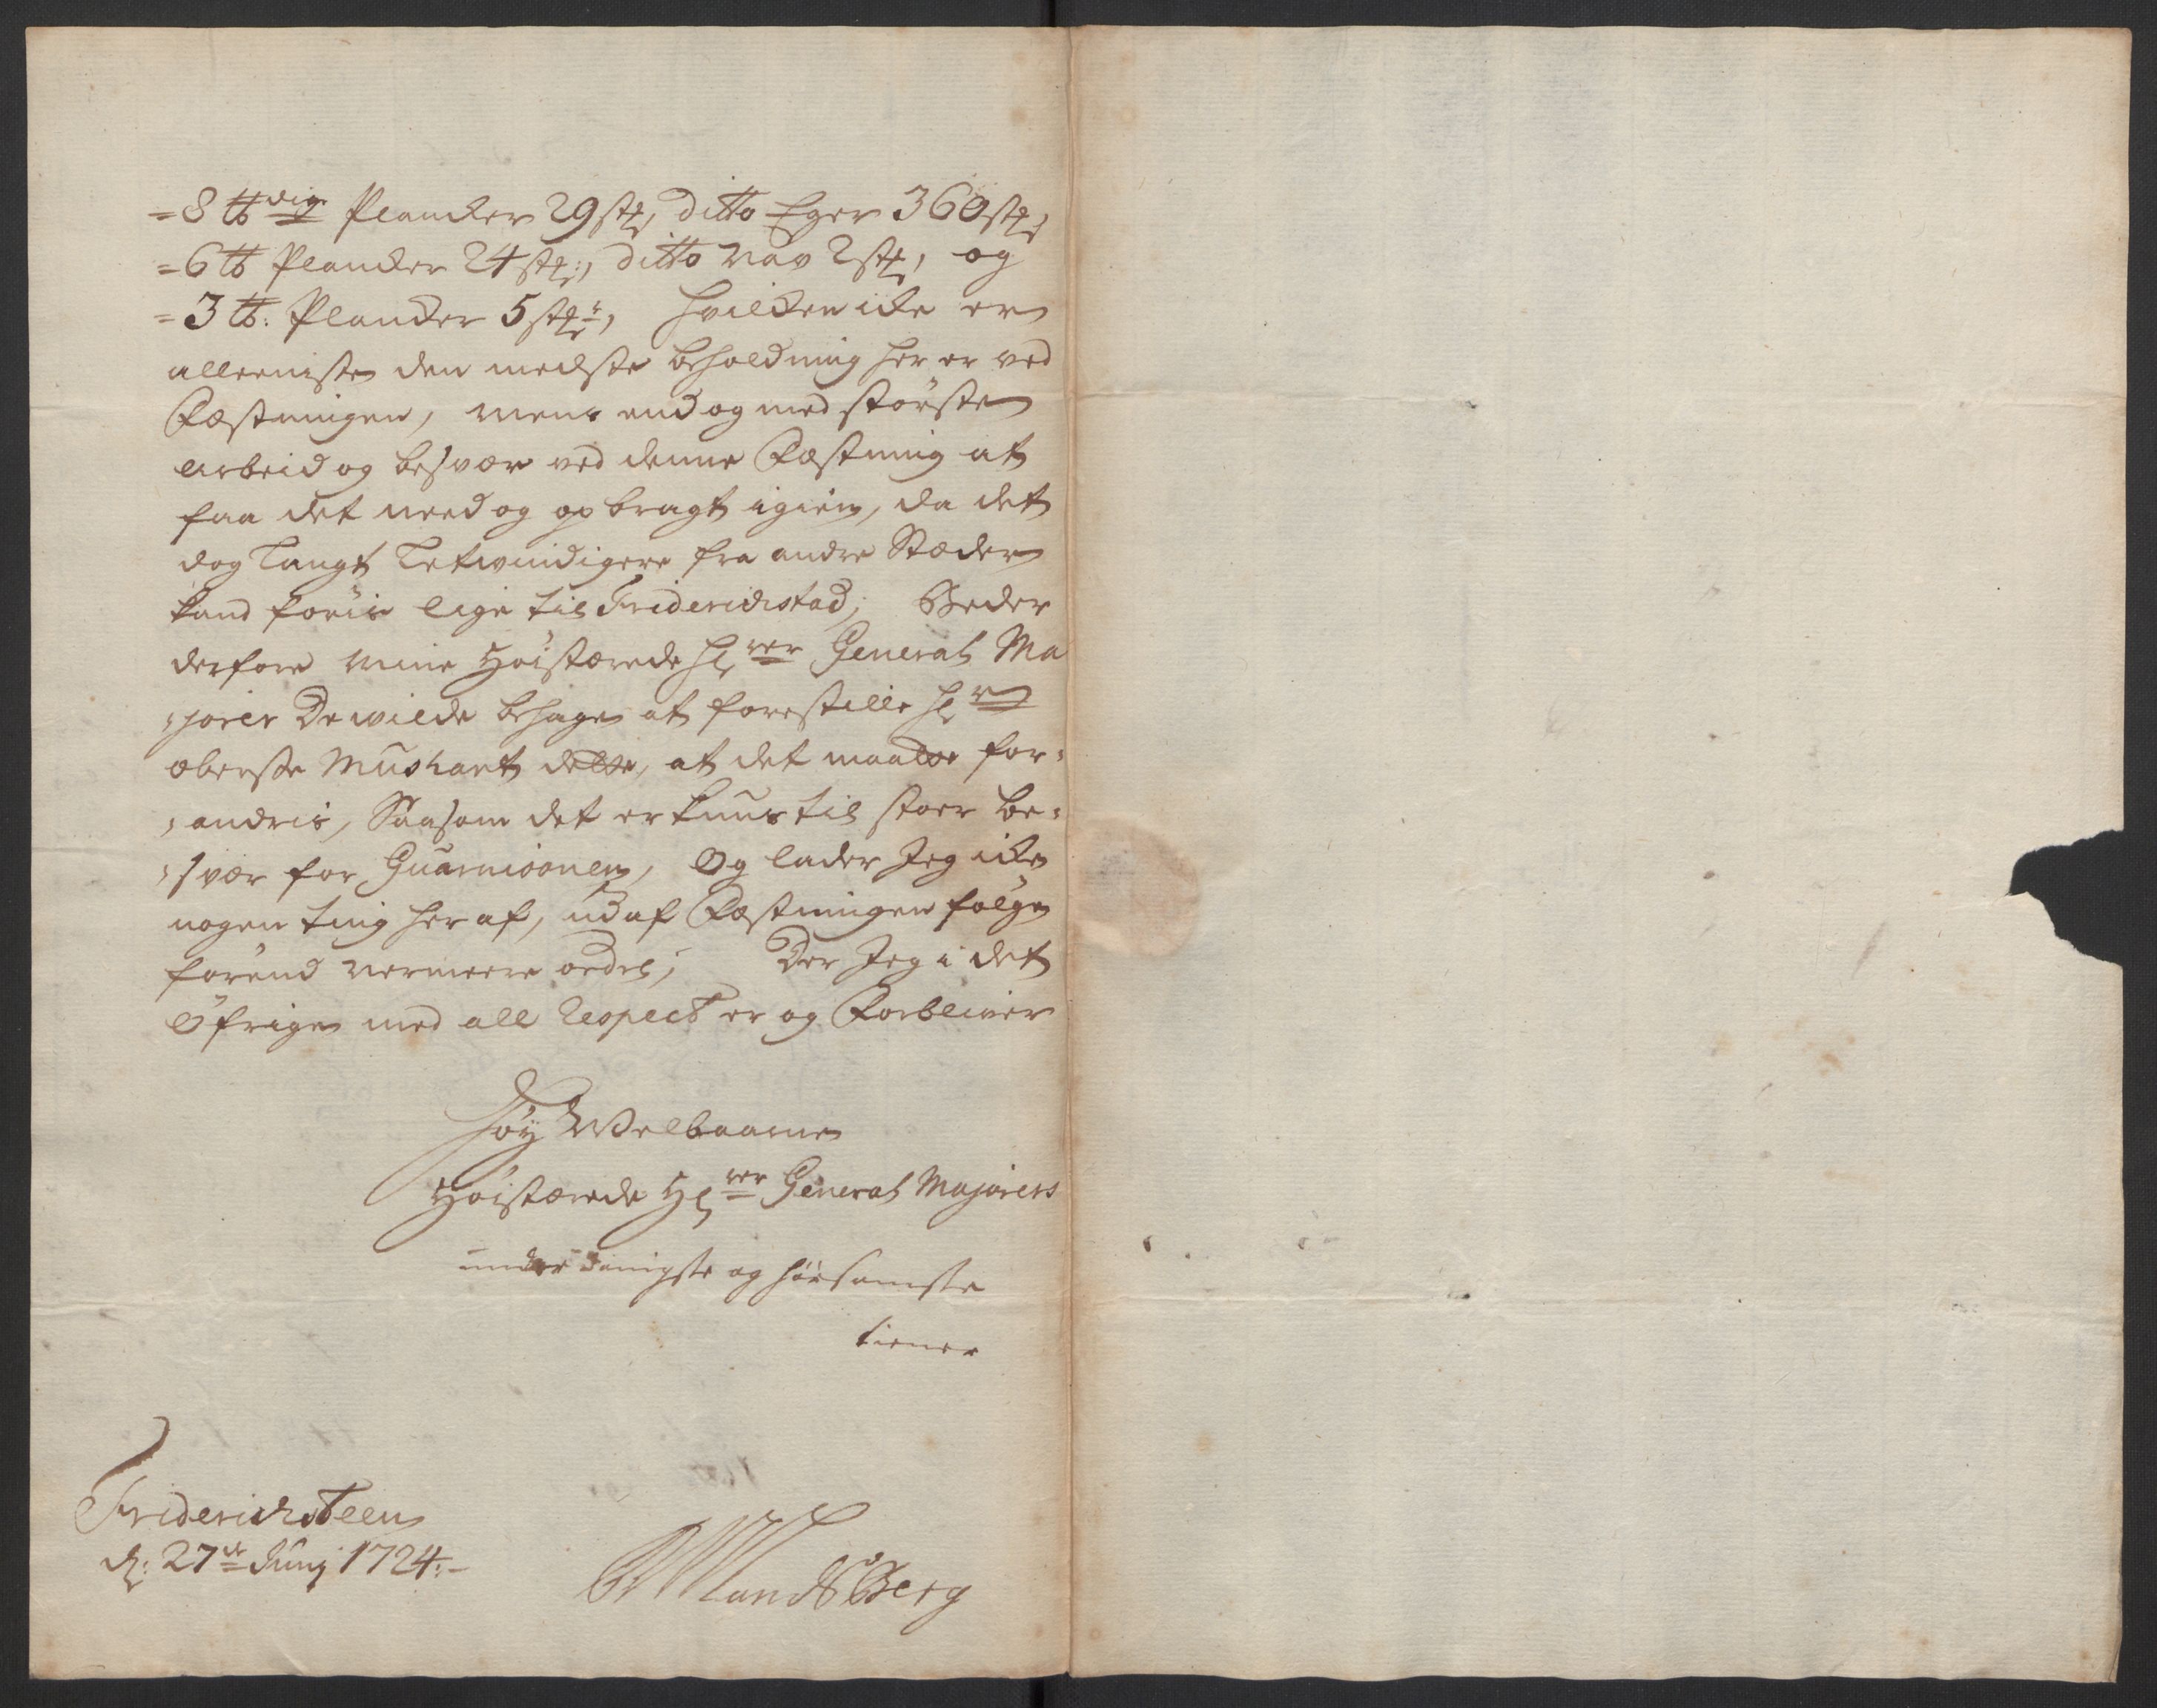 =8 ℔dig Plancker 29 stk, ditto Eger 360 stk,
=6 ℔ Plancker 24 stk:, ditto Nav 2 stk, og
=3 ℔: Plancker 5 stkr, hvilcken icke er
alleeniste den meeste beholdning her er ved
Fæstningen, mens end og med største
Arbeid og besvær ved denne Fæstning at
faa det need og op bragt igien, da det
dog langt letvindigere fra andre Stæder
kand føris lige til Friderichstad; Beder
derfore Mine Høistærede Hrrer General Ma
=jorer De wilde behage at forestille Hr
Oberste Mushart dette, at det maatte for=
=andris, Saasom det er kuns til stoer be=
=svær for Guarnisonen, Og lader Jeg icke
nogen ting her af, ud af Fæstningen følge
førend nermeere ordre; Der Jeg i det
Øfrige med all Respect er og Forbliver
Høy Welbaarne
Høistærede Hrrer General Majorers
underdanigste og hørsamste
tiener
Friderichsteen
d: 27de Junj 1724:-
LandsBerg